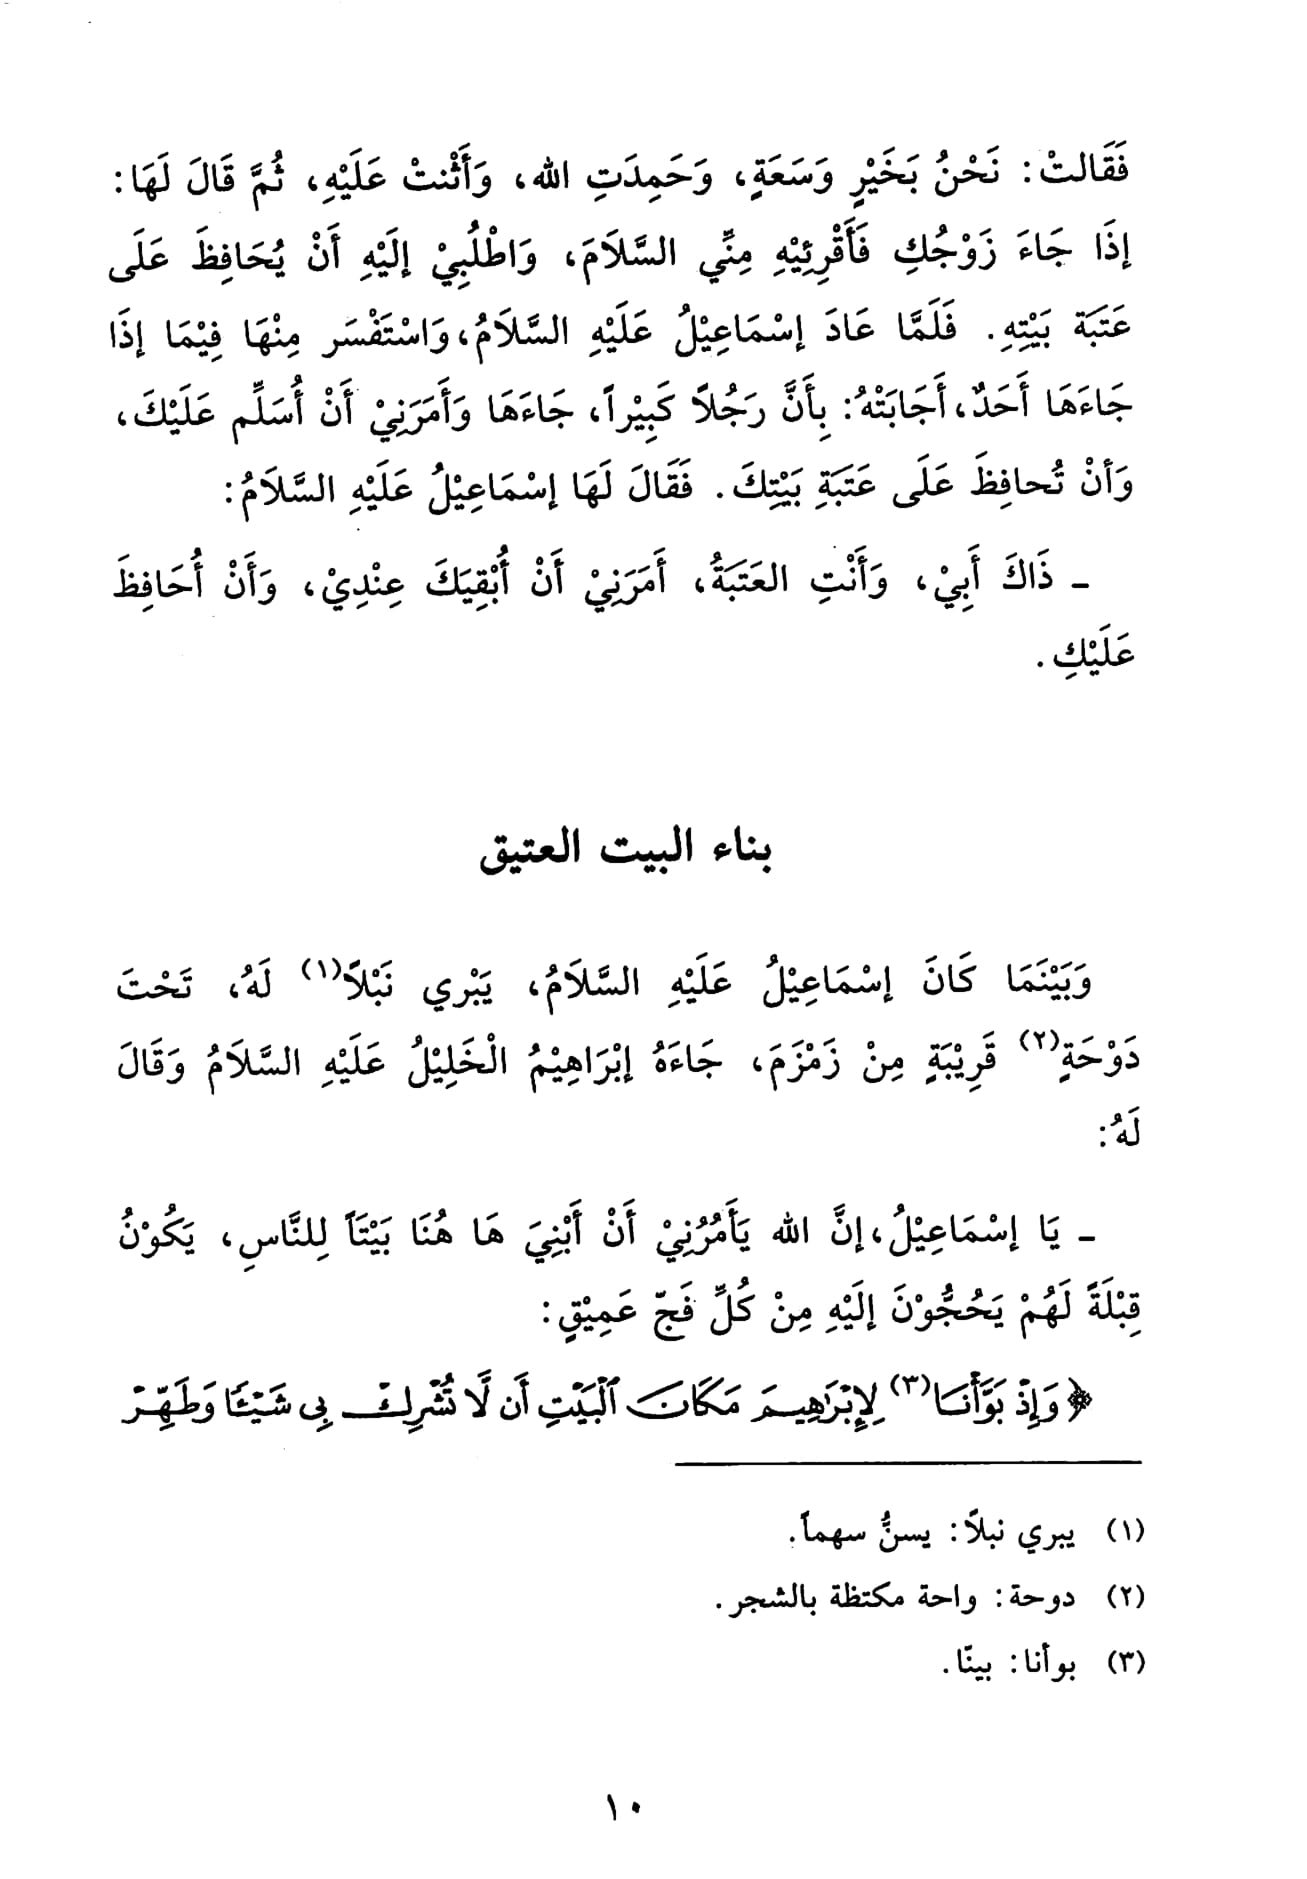 فَقَالتْ: نَحْنُ بَخَيْرٍ وَسَعَةٍ، وَحَمِدَتِ الله، وَأَثْنتْ عَلَيْهِ، ثُمَّ قَالَ لَهَا:
إذَا جَاءَ زَوْجُكِ فَأَقْرِئِيْهِ مِنِّي السَّلَامَ، وَاطْلُبِيْ إلَيْهِ أَنْ يُحَافِظَ عَلَى
عَتَبَة بَيْتِهِ. فَلَمَّا عَادَ إسْمَاعِيْلُ عَلَيْهِ السَّلَامُ، وَاسْتَفْسَر مِنْهَا فِيْمَا إذَا
جَاءَهَا أَحَدٌ، أَجَابَتْهُ: بِأَنَّ رَجُلاً كَبِيْراً، جَاءَهَا وَأَمَرَنِيْ أَنْ أُسَلِّم عَلَيْكَ،
وَأنْ تُحافِظَ عَلَى عَتَبَةِ بَيْتِكَ. فَقَالَ لَهَا إسْمَاعِيْلُ عَلَيْهِ السَّلَامُ:
ـ ذَاكَ أَبِيْ، وَأَنْتِ العَتَبَةُ، أَمَرَنِيْ أَنْ أُبْقِيَكَ عِنْدِيْ، وَأَنْ أُحَافِظَ
عَلَيْكِ.
بناء البيت العتيق
وَبَيْنَمَا كَانَ إسْمَاعِيْلُ عَلَيْهِ السَّلَامُ، يَبْري نَبْلاً(١) لَهُ، تَحْتَ
دَوْحَةٍ(٢) قَرِيْبَةٍ مِنْ زَمْزَمَ، جَاءَهُ إبْرَاهِيْمُ الْخَلِيْلُ عَلَيْهِ السَّلَامُ وَقَالَ
لَهُ:
ـ يَا إسْمَاعِيْلُ، إنَّ الله يَأمُرُنِيْ أَنْ أَبْنِيَ هَا هُنَا بَيْتَاً لِلنَّاسِ، يَكُوْنُ
قِبْلَةً لَهُمْ يَحُجُّوْنَ إلَيْهِ مِنْ كُلِّ فَجّ عَمِيْقٍ:
﴿وَإِذْ بَوَّأْنَا(٣) لِإِبْرَٰهِيمَ مَكَانَ ٱلْبَيْتِ أَن لَّا تُشْرِكْ بِى شَيْـًٔا وَطَهِّرْ
(١) يبري نبلاً: يسنُّ سهماً.
(٢) دوحة: واحة مكتظة بالشجر.
(٣) بوأنا: بينّا.
١٠